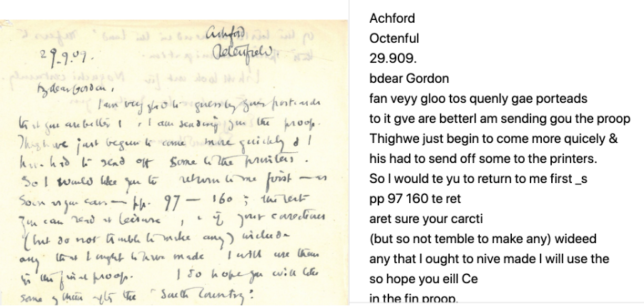 Ashford
Petersfield
29.9.09.
My dear Gordon,
I am very glad to guess by your postcards
that you are better & I am sending you the proofs.
They have just begun to come more quickly & I
have had to send off some to the printers.
So I would like you to return to me first — as
soon as you can — pp. 97 — 160 ; the rest
you can read at leisure, & if your corrections
(but do not trouble to make any) include
any that I ought to have made I will use them
in the final proof. I do hope you will like
some of after the "South Country".
Achford
Octenful
29.909.
bdear Gordon
fan veyy gloo tos quenly gae porteads
to it gve are betterl am sending gou the proop
Thighwe just begin to come more quicely &
his had to send off some to the printers.
So I would te yu to return to me first _s
pp 97 160 te ret
aret sure your carcti
(but so not temble to make any) wideed
any that I ought to nive made I will use the
so hope you eill Ce
in the fin proop.